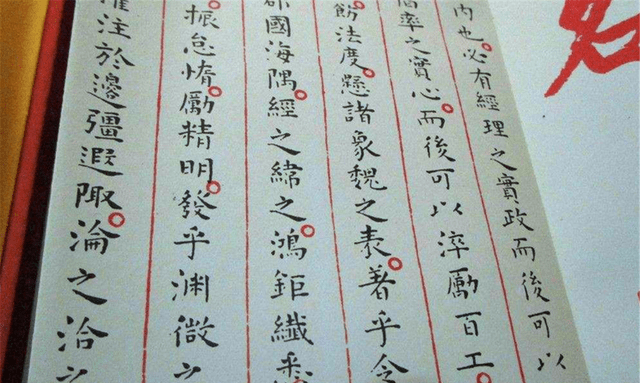 内也必有經理之實政而後可以
倡率之實心而後可以淬勵百工
飭法度懸諸象魏之表著乎令
郡國海隅經之緯之鴻鉅纖悉
振怠惰勵精明發乎渊微之
灌注於邊彊遐陬淪之洽之